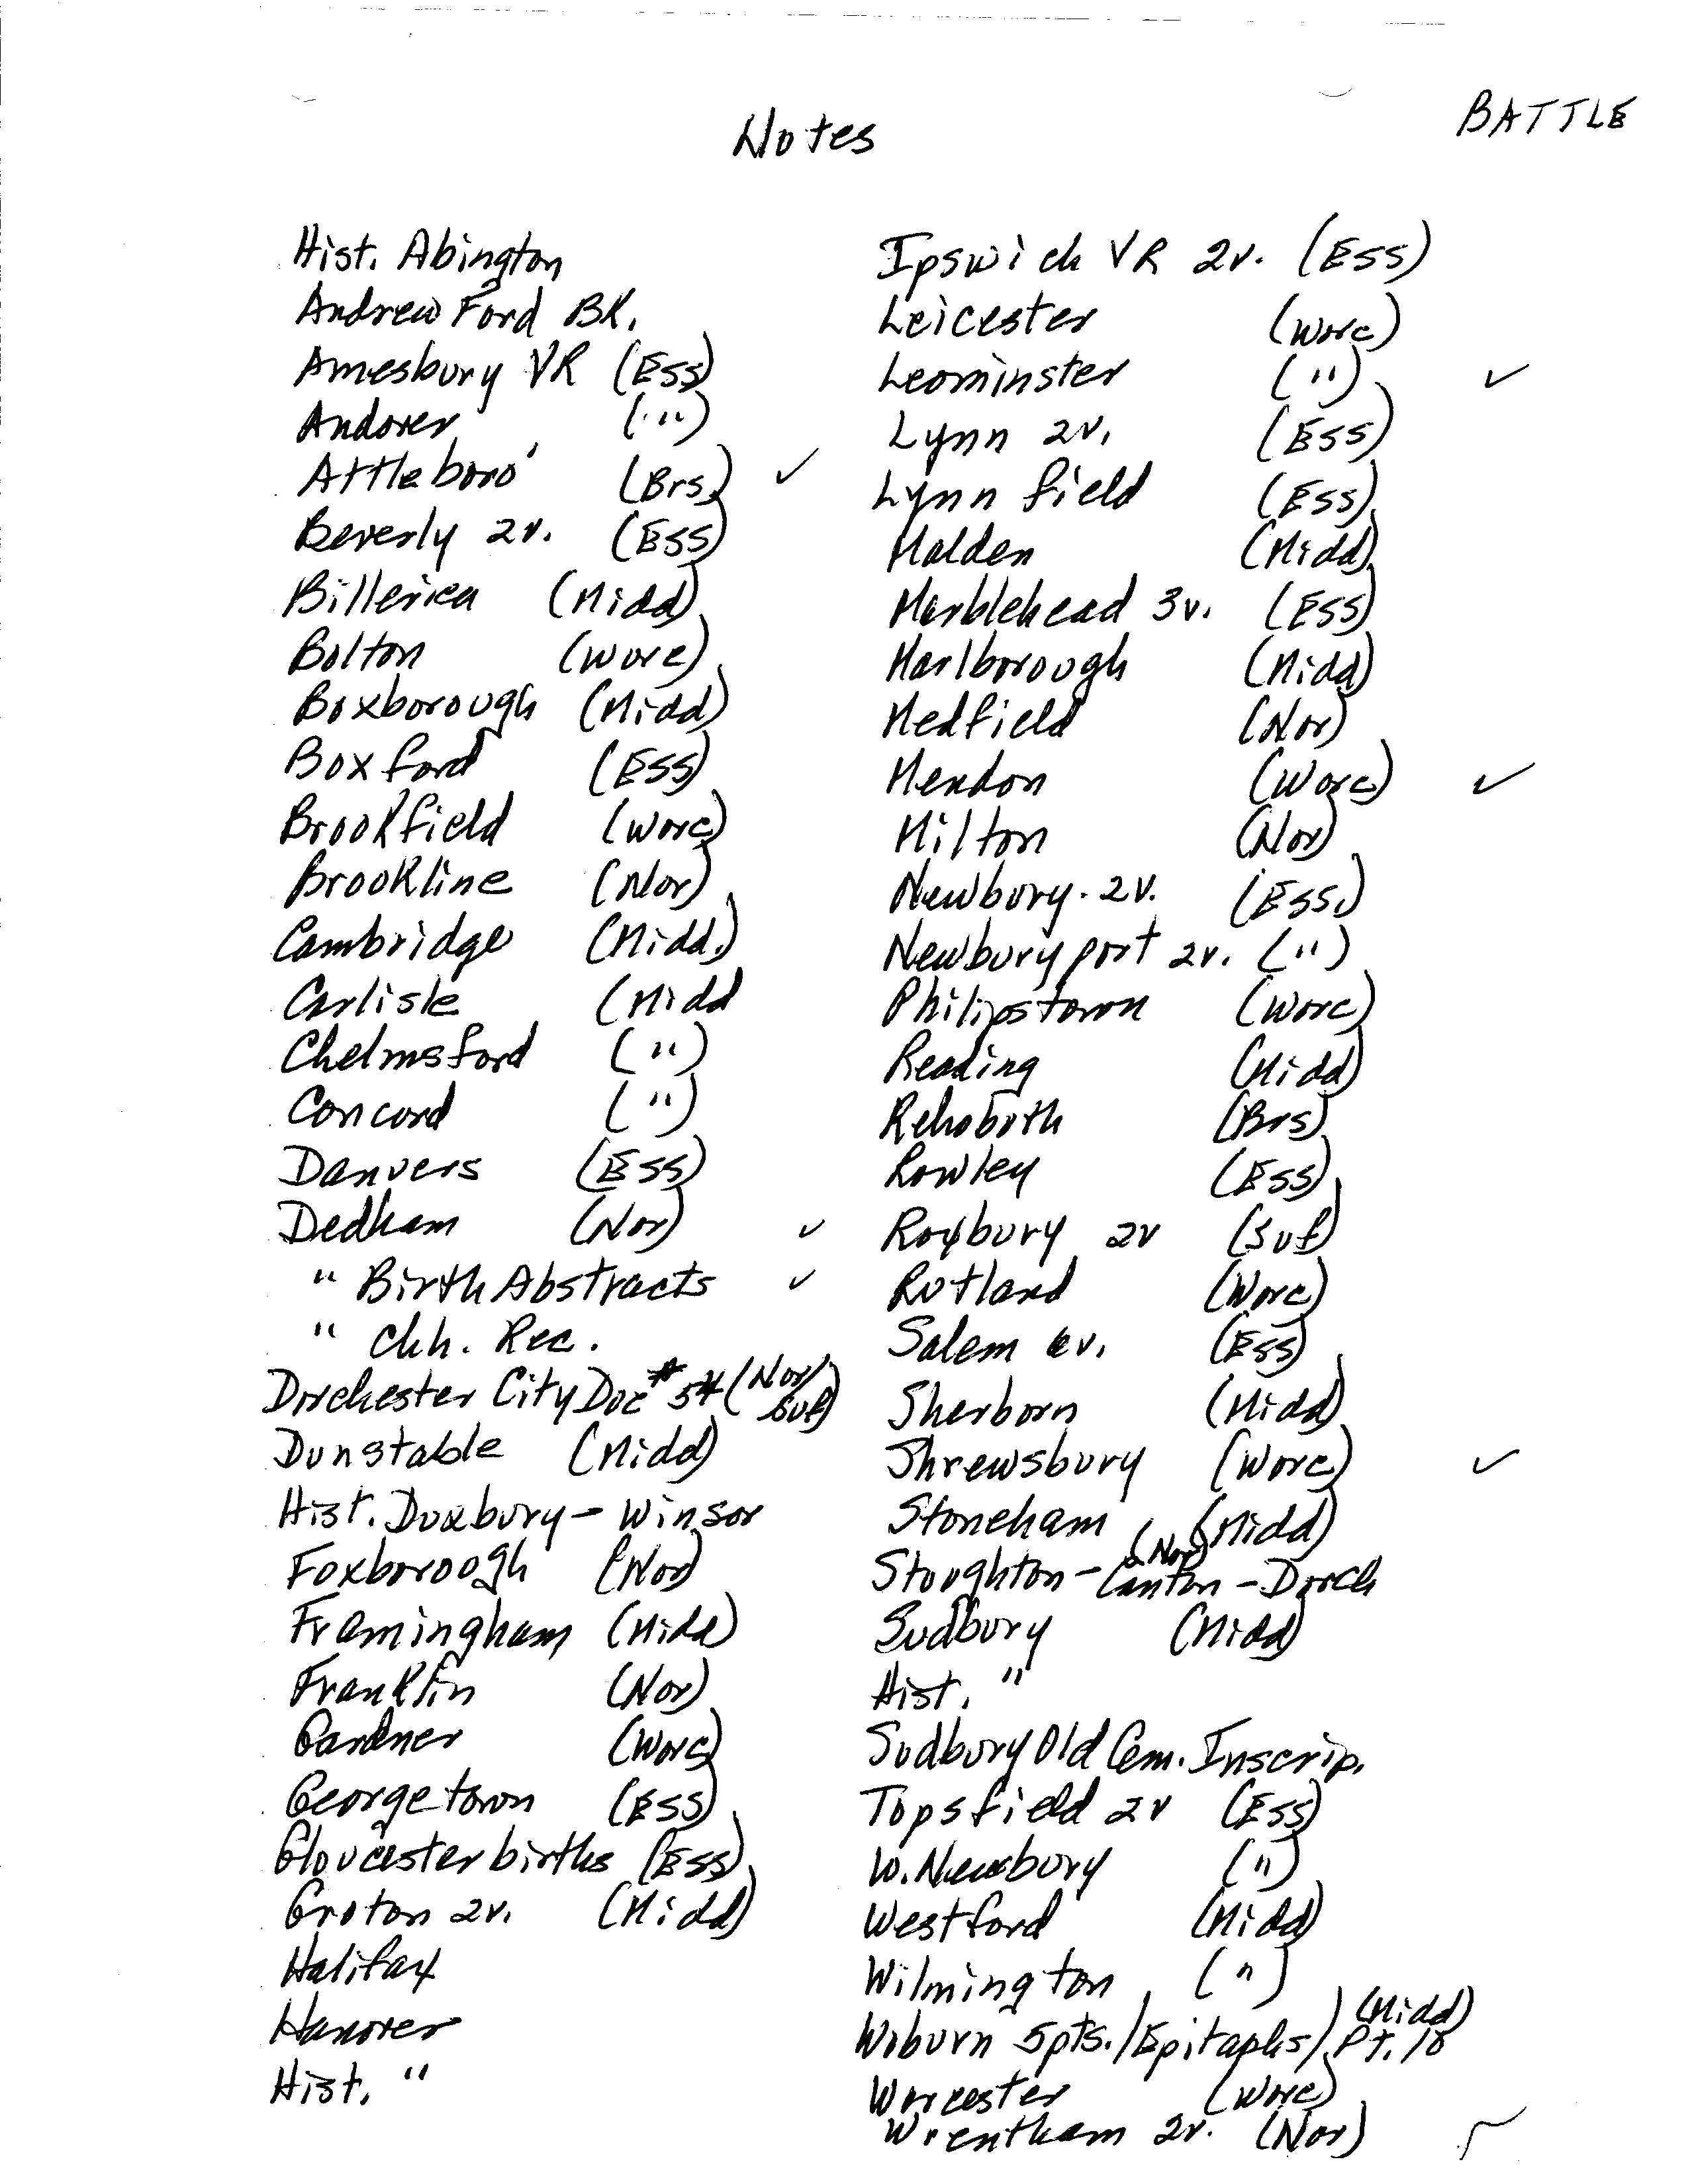 Notes
BATTLE
Hist. Abington
Andrew Ford BK.
Amesbury VR (Ess)
Andover (")
Attleboro' (Brs.) ✓
Beverly 2v. (Ess)
Billerica (Midd)
Bolton (Worc)
Boxborough (Midd)
Boxford (Ess)
Brookfield (Worc)
Brookline (Nor)
Cambridge (Midd.)
Carlisle (Midd
Chelmsford (")
Concord (")
Danvers (Ess)
Dedham (Nor) ✓
" Birth Abstracts ✓
" Chh. Rec.
Dorchester City Doc #54 (Nor/Suf)
Dunstable (Midd)
Hist. Duxbury - Winsor
Foxborough (Nor)
Framingham (Midd)
Franklin (Nor)
Gardner (Worc)
Georgetown (Ess)
Gloucester births (Ess)
Groton 2v. (Midd)
Halifax
Hanover
Hist. "
Ipswich VR 2v. (Ess)
Leicester (Worc)
Leominster (") ✓
Lynn 2v. (Ess)
Lynnfield (Ess)
Malden (Midd)
Marblehead 3v. (Ess)
Marlborough (Midd)
Medfield (Nor)
Mendon (Worc) ✓
Milton (Nor)
Newbury. 2v. (Ess.)
Newburyport 2v. (")
Philipstown (Worc)
Reading (Midd)
Rehoboth (Brs)
Rowley (Ess)
Roxbury 2v (Suf)
Rutland (Worc)
Salem 6v. (Ess)
Sherborn (Midd)
Shrewsbury (Worc) ✓
Stoneham (Midd)
Stoughton - Canton - Dorch (Nor)
Sudbury (Midd)
Hist. "
Sudbury Old Cem. Inscrip.
Topsfield 2v (Ess)
W. Newbury (")
Westford (Midd)
Wilmington (")
Woburn 5pts. / Epitaphs / Pt. 10 (Midd)
Worcester (Worc)
Wrentham 2v. (Nor) ✓